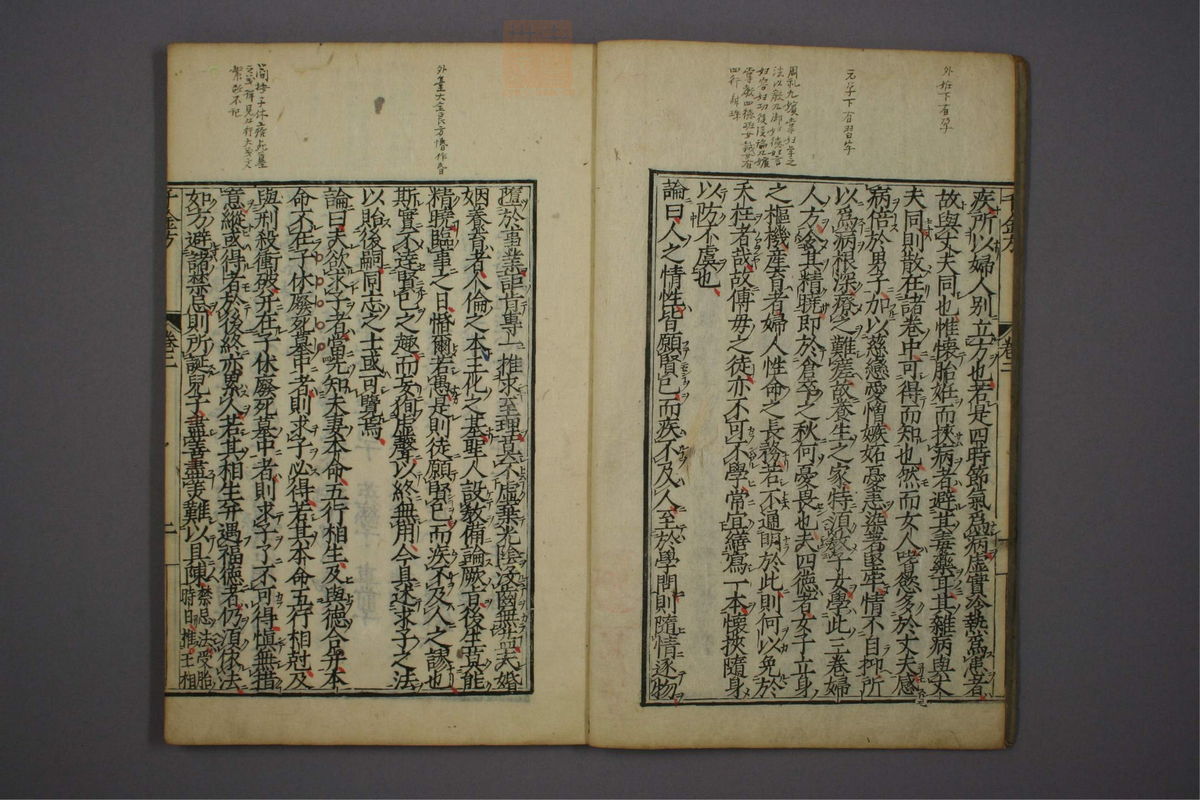 疾所以婦人别立方也若是四時節氣爲病虚實冷熱爲患者
故與丈夫同也惟懷胎妊而挾病者避其毒藥耳其雜病與丈
夫同則散在諸卷中可得而知也然而女人嗜慾多於丈夫感
病倍於男子加以慈戀愛憎嫉妬憂恚染著堅牢情不自抑所
以爲病根深療之難差故養生之家特須教子女學此三卷婦
人方令其精曉即於倉卒之秋何憂畏也夫四德者女子立身
之樞機産育者婦人性命之長務若不通明於此則何以免於
夭枉者哉故傅母之徒亦不可不學常宜繕寫一本懷挾隨身
以防不虞也
論曰人之情性皆願賢己而疾不及人至於學問則隨情逐物
墮於事業詎肯專一推求至理莫不虚棄光陰没齒無益夫婚
姻養育者人倫之本王化之基聖人設教備論厥旨後生莫能
精曉臨事之日惛爾若愚是則徒願賢己而疾不及人之謬也
斯實不達賢己之趣而妄徇虚聲以終無用今具述求子之法
以貽後嗣同志之士或可覽焉
論曰夫欲求子者當先知夫妻本命五行相生及與德合并本
命不在子休廢死墓中者則求子必得若其本命五行相尅及
與刑殺衝破并在子休廢死墓中者則求子了不可得慎無措
意縱或得者於後終亦累人若其相生并遇福德者仍須依法
如方避諸禁忌則所誕兒子盡善盡美難以具陳禁忌法受胎
時日推王相
千金方
卷二
二
元字下有習字